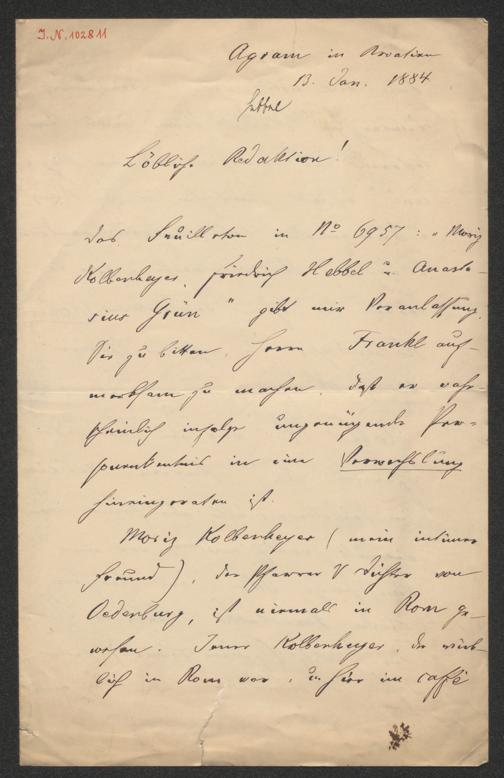 I.N. 102811
Agram in Kroatien
13. Jan. 1884
Hebbel
Löbliche Redaktion!
Das Feuilleton in No 6957: „Moriz
Kolbenheyer, Friedrich Hebbel u. Anasta-
sius Grün" gibt mir Veranlassung,
Sie zu bitten, Herrn Frankl auf-
merksam zu machen, daß er wahr-
scheinlich infolge ungenügender Per-
sonenkentnis in eine Verwechslung
hineingeraten ist.
Moriz Kolbenheyer (mein intimer
Freund), der Pfarrer & Dichter von
Oedenburg, ist niemals in Rom ge-
wesen. Jener Kolbenheyer, der wirk-
lich in Rom war, u. hier im café